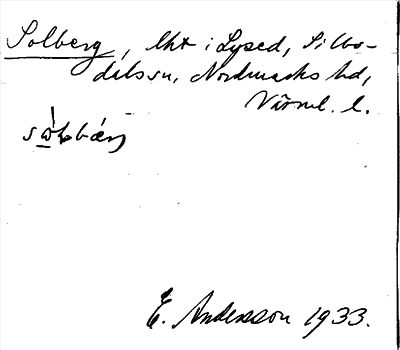 Solberg, lht i Lysed, Silbo-
dals sn, Nordmarks hd,
Värml. l.
E. Andersson 1933.